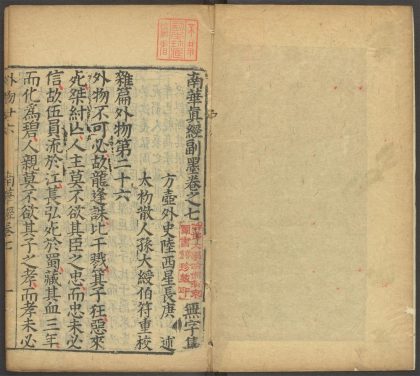 南華真經副墨卷之七
無字集
方壺外史陸西星長庚 述
太物散人孫大綬伯符重校
雜篇外物第二十六
外物不可必故龍逄誅比干戮箕子狂惡來
死桀紂亡人主莫不欲其臣之忠而忠未必
信故伍員流於江萇弘死於蜀藏其血三年
而化為碧人親莫不欲其子之孝而孝未必
外物廿六
南華經卷七
一